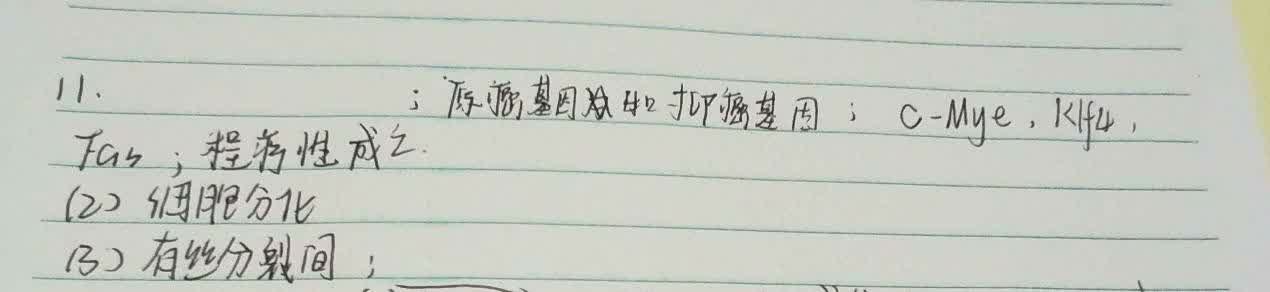 11. ; 原癌基因和抑癌基因 ; C-Mye, Klf4,
Fas ; 程序性成亡.
(2) 细胞分化
(3) 有丝分裂间 ;